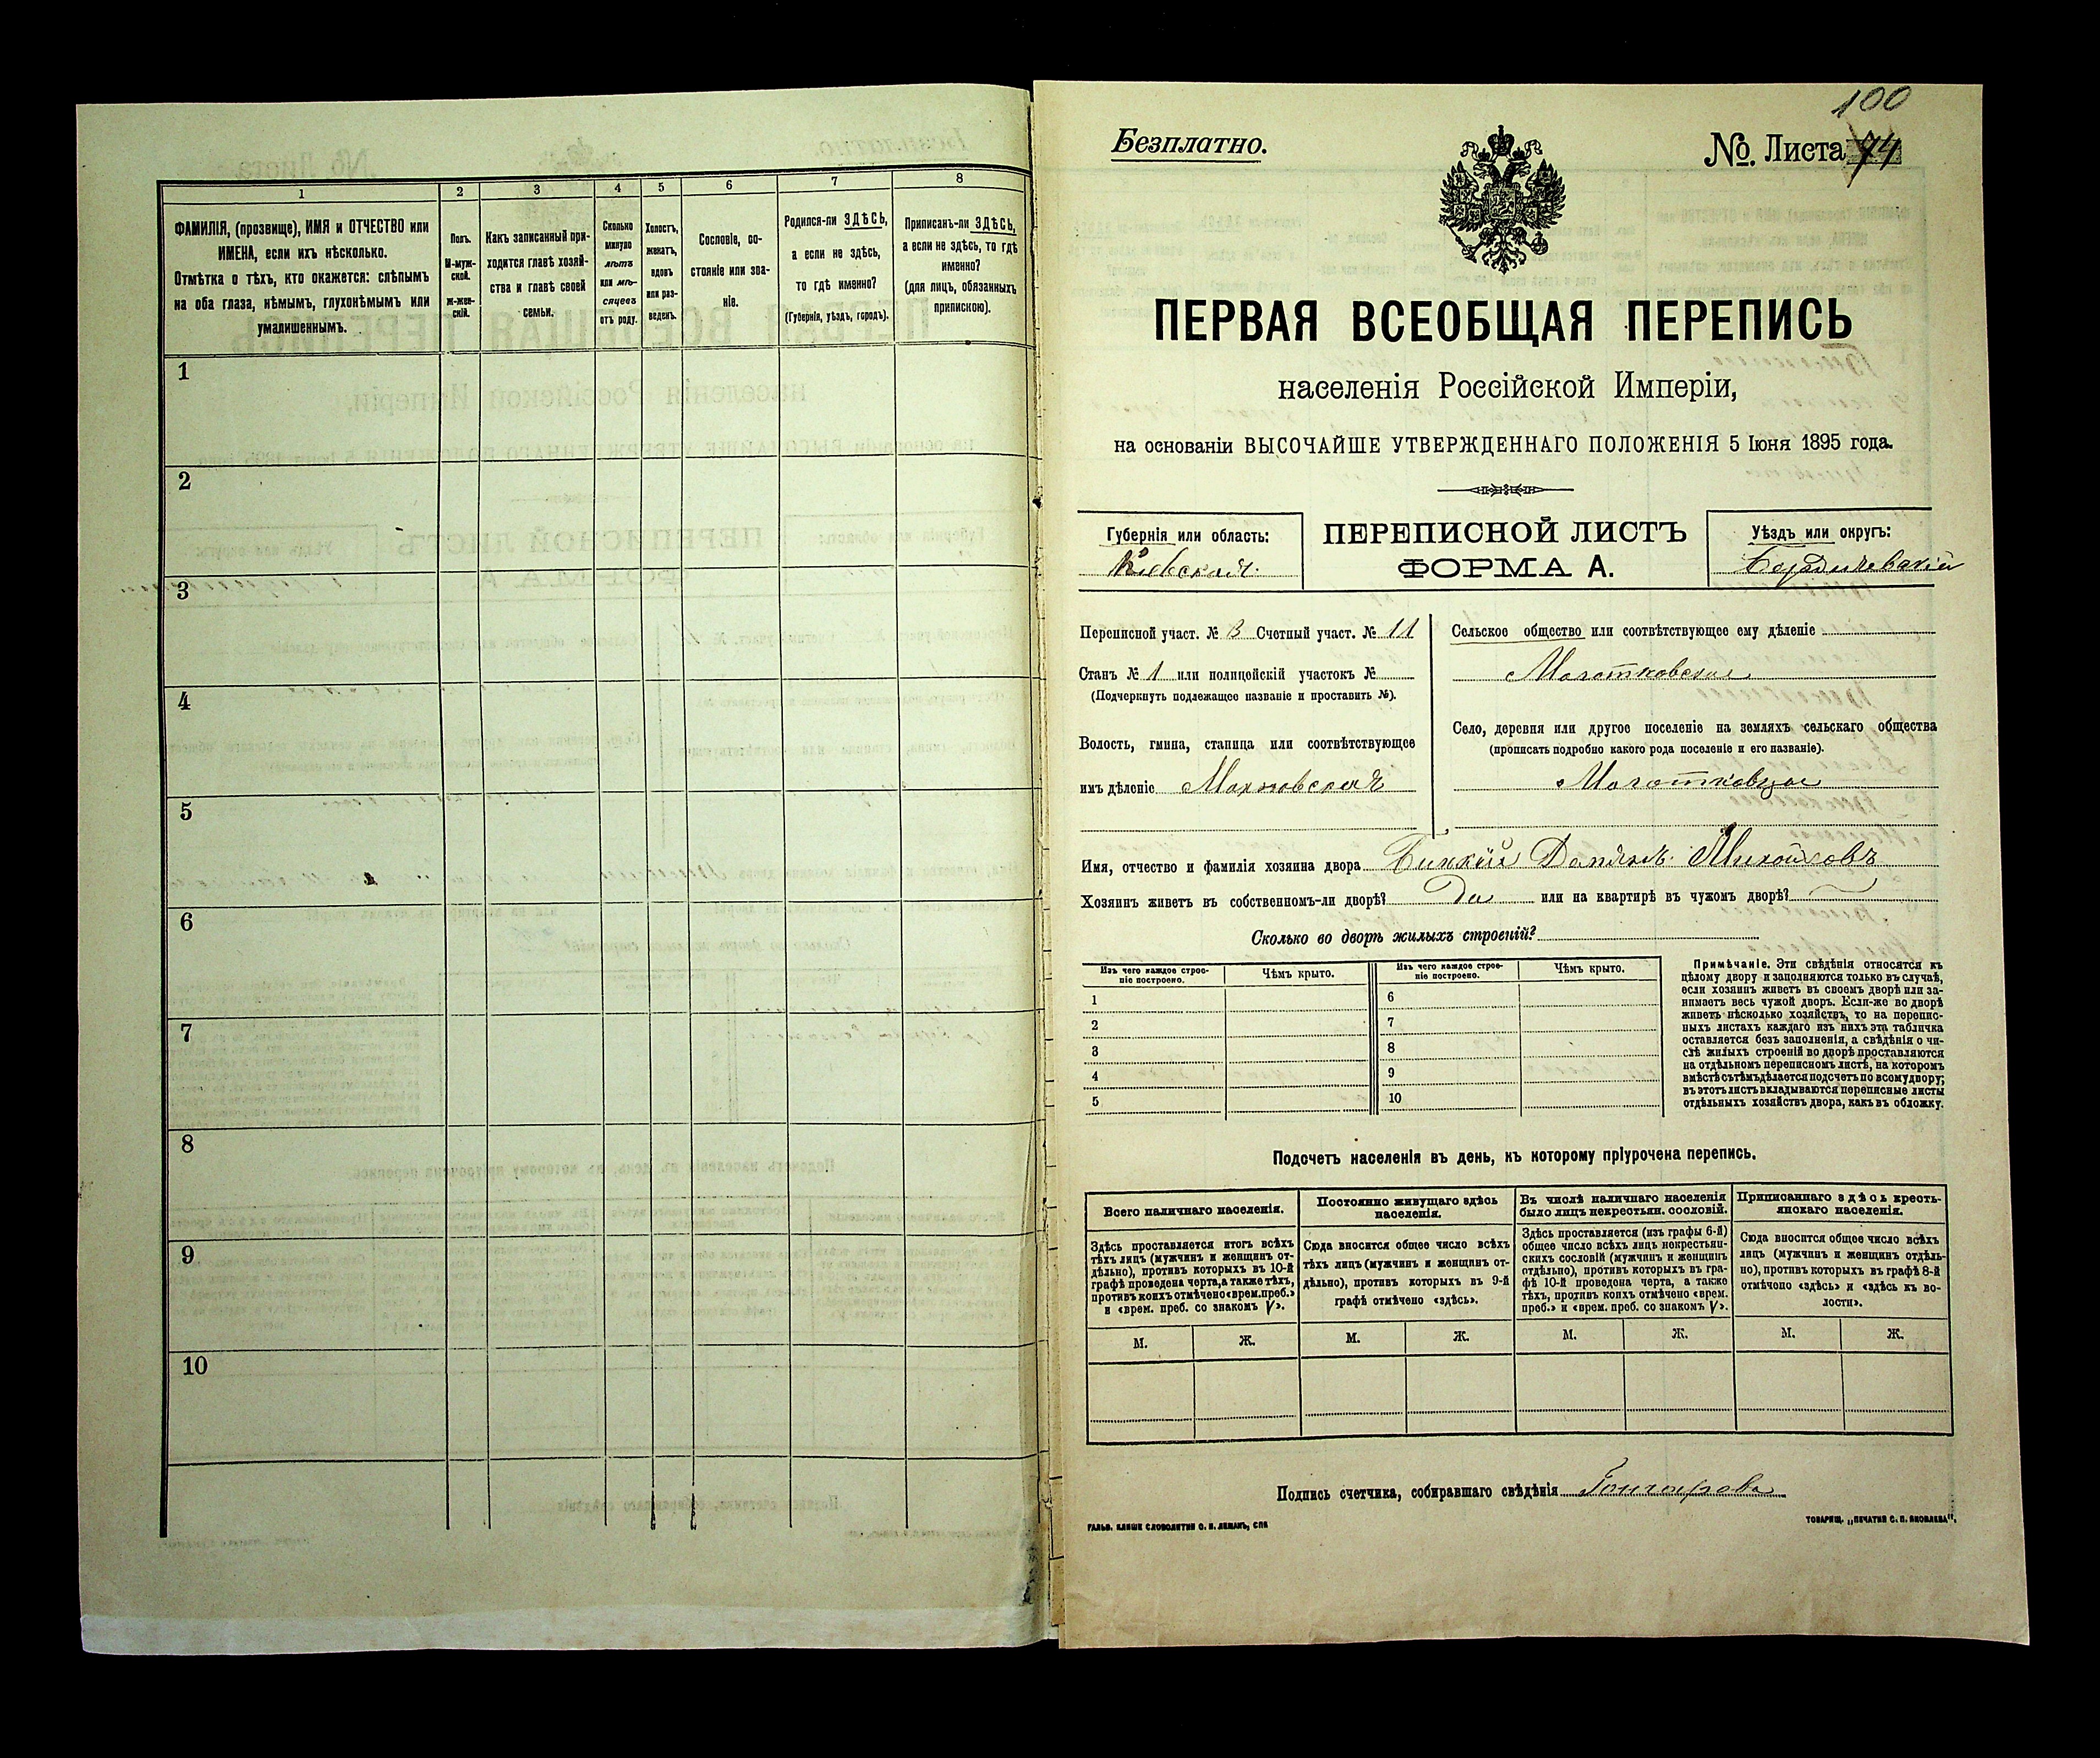 1 2 3 4 5 6 7 8
ФАМИЛІЯ, (прозвище), ИМЯ и ОТЧЕСТВО или
ИМЕНА, если ихъ нѣсколько.
Отмѣтка о тѣхъ, кто окажется: слѣпымъ
на оба глаза, нѣмымъ, глухонѣмымъ или
умалишеннымъ.
Полъ.
М-муж-
ской.
Ж-жен-
скій.
Какъ записанный при-
ходится главѣ хозяй-
ства и главѣ своей
семьи.
Сколько
минуло
лѣтъ
или мѣ-
сяцевъ
отъ роду.
Холостъ,
женатъ,
вдовъ
или раз-
веденъ.
Сословіе, со-
стояніе или зва-
ніе.
Родился-ли ЗДѢСЬ,
а если не здѣсь,
то гдѣ именно?
(Губернія, уѣздъ, городъ).
Приписанъ-ли ЗДѢСЬ,
а если не здѣсь, то гдѣ
именно?
(для лицъ, обязанныхъ
припискою).
1
2
3
4
5
6
7
8
9
10
100
Безплатно.
№. Листа 74
ПЕРВАЯ ВСЕОБЩАЯ ПЕРЕПИСЬ
населенія Россійской Имперіи,
на основаніи ВЫСОЧАЙШЕ УТВЕРЖДЕННАГО ПОЛОЖЕНІЯ 5 Іюня 1895 года.
Губернія или область:
Кіевская
ПЕРЕПИСНОЙ ЛИСТЪ
ФОРМА А.
Уѣздъ или округъ:
Бердичевскій
Переписной участ. № 3 Счетный участ. № 11
Станъ № 1 или полицейскій участокъ №
(Подчеркнуть подлежащее названіе и проставить №).
Волость, гмина, станица или соотвѣтствующее
имъ дѣленіе Махновская
Сельское общество или соотвѣтствующее ему дѣленіе
Село, деревня или другое поселеніе на земляхъ сельскаго общества
(прописать подробно какого рода поселеніе и его названіе).
Имя, отчество и фамилія хозяина двора
Хозяинъ живетъ въ собственномъ-ли дворѣ? Да или на квартирѣ въ чужомъ дворѣ?
Сколько во дворѣ жилыхъ строеній?
Изъ чего каждое строе-
ніе построено.
Чѣмъ крыто.
Изъ чего каждое строе-
ніе построено.
Чѣмъ крыто.
1 6
2 7
3 8
4 9
5 10
Примѣчаніе. Эти свѣдѣнія относятся къ
цѣлому двору и заполняются только въ случаѣ,
если хозяинъ живетъ въ своемъ дворѣ или за-
нимаетъ весь чужой дворъ. Если-же во дворѣ
живетъ нѣсколько хозяйствъ, то на перепис-
ныхъ листахъ каждаго изъ нихъ эта табличка
оставляется безъ заполненія, а свѣдѣнія о чи-
слѣ жилыхъ строеній во дворѣ проставляются
на отдѣльномъ переписномъ листѣ, на которомъ
вмѣстѣ съ тѣмъ дѣлается подсчетъ по всому двору;
въ этотъ листъ вкладываются переписные листы
отдѣльныхъ хозяйствъ двора, какъ въ обложку.
Подсчетъ населенія въ день, къ которому пріурочена перепись.
Всего наличнаго населенія.
Постоянно живущаго здѣсь
населенія.
Въ числѣ наличнаго населенія
было лицъ некрестьян. сословій.
Приписаннаго здѣсь кресть-
янскаго населенія.
Здѣсь проставляется итогъ всѣхъ
тѣхъ лицъ (мужчинъ и женщинъ от-
дѣльно), противъ которыхъ въ 10-й
графѣ проведена черта, а также тѣхъ,
противъ коихъ отмѣчено «врем. преб.»
и «врем. преб. со знакомъ V».
Сюда вносится общее число всѣхъ
тѣхъ лицъ (мужчинъ и женщинъ от-
дѣльно), противъ которыхъ въ 9-й
графѣ отмѣчено «здѣсь».
Здѣсь проставляется (изъ графы 6-й)
общее число всѣхъ лицъ некрестьян-
скихъ сословій (мужчинъ и женщинъ
отдѣльно), противъ которыхъ въ гра-
фѣ 10-й проведена черта, а также
тѣхъ, противъ коихъ отмѣчено «врем.
преб.» и «врем. преб. со знакомъ V».
Сюда вносится общее число всѣхъ
лицъ (мужчинъ и женщинъ отдѣль-
но), противъ которыхъ въ графѣ 8-й
отмѣчено «здѣсь» и «здѣсь къ во-
лости».
М. Ж. М. Ж. М. Ж. М. Ж.
Подпись счетчика, собиравшаго свѣдѣнія Гончарова
ГАЛЬВ. КЛИШЕ СЛОВОЛИТНИ О. И. ЛЕМАНЪ, СПБ
ТОВАРИЩ. „ПЕЧАТНЯ С. П. ЯКОВЛЕВА".